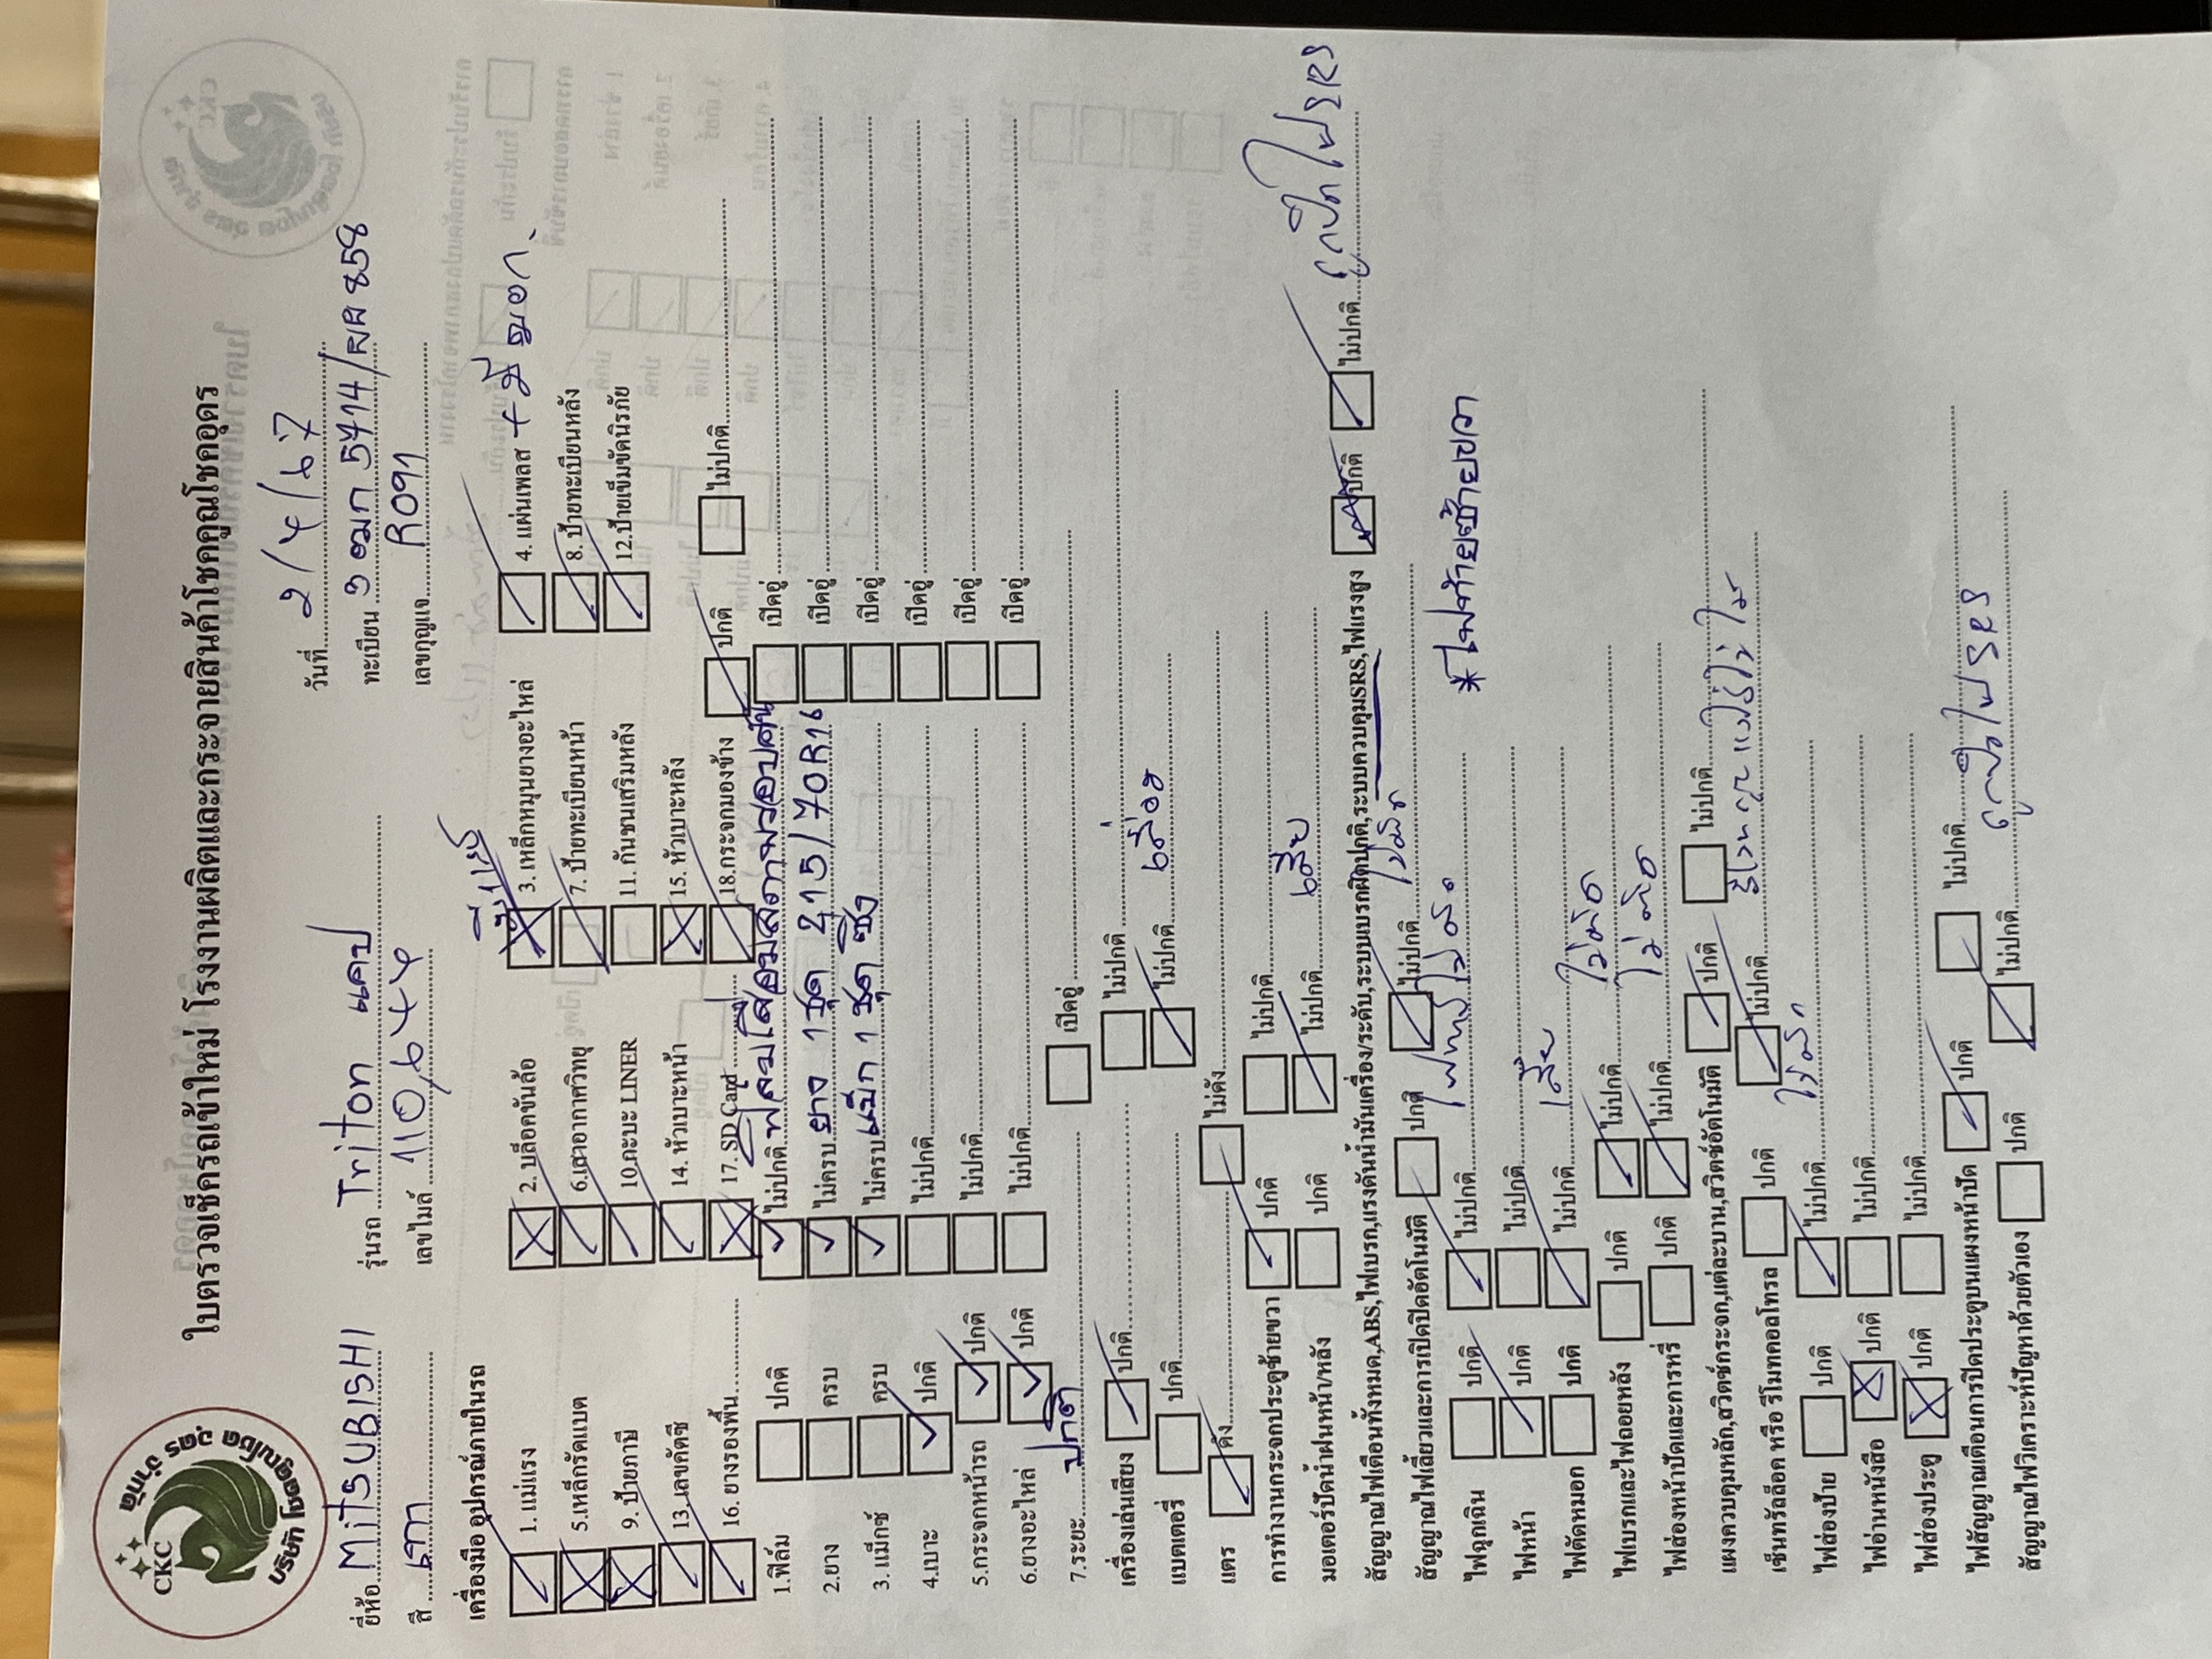 CKC
บริษัท โชคคูณโชค อุดร จำกัด
ใบตรวจเช็ครถเข้าใหม่ โรงงานผลิตและกระจายสินค้าโชคคูณโชคอุดร
วันที่ 2/4/67
ยี่ห้อ MITSUBISHI รุ่นรถ Triton แคป ทะเบียน 3 ฒก 5714/ผผ 858
สี เทา เลขไมล์ 110,644 เลขกุญแจ R091
เครื่องมือ อุปกรณ์ภายในรถ
1. แม่แรง 2. บล็อคขันล้อ 3. เหล็กหมุนยางอะไหล่ 4. แผ่นเพลส
5.เหล็กรัดแบต 6.เสาอากาศวิทยุ 7. ป้ายทะเบียนหน้า 8. ป้ายทะเบียนหลัง
9. ป้ายภาษี 10.คะบะ LINER 11. กันชนเสริมหลัง 12.ป้ายเข็มขัดนิรภัย
13. เลขคัตซี 14. หัวเบาะหน้า 15. หัวเบาะหลัง
16. ยางรองพื้น 17. SD Card 18.กระจกมองข้าง ปกติ ไม่ปกติ
1.ฟิล์ม ปกติ ไม่ปกติ เปิดอยู่
2.ยาง ครบ ไม่ครบ ยาง 1ชุด 215/70R16 เปิดอยู่
3. แม็กซ์ ครบ ไม่ครบ แม็ก 1 ชุด ซิ่ง เปิดอยู่
4.เบาะ ปกติ ไม่ปกติ เปิดอยู่
5.กระจกหน้ารถ ปกติ ไม่ปกติ เปิดอยู่
6.ยางอะไหล่ ปกติ ไม่ปกติ เปิดอยู่
7.ระยะ ปกติ เปิดอยู่
เครื่องเล่นเสียง ปกติ ไม่ปกติ
แบตเตอรี่ ปกติ ไม่ปกติ เสื่อม
แตร ดัง ไม่ดัง
การทำงานกระจกประตูซ้ายขวา ปกติ ไม่ปกติ
มอเตอร์ปัดน้ำฝนหน้า/หลัง ปกติ ไม่ปกติ เสีย
สัญญาณไฟเตือนทั้งหมด,ABS,ไฟเบรก,แรงดันน้ำมันเครื่อง/ระดับ,ระบบเบรกผิดปกติ,ระบบควบคุมSRS,ไฟแรงสูง ปกติ ไม่ปกติ ถูกปิดไฟ SRS
สัญญาณไฟเลี้ยวและการเปิดปิดอัตโนมัติ ปกติ ไม่ปกติ
ไฟฉุกเฉิน ปกติ ไม่ปกติ * ไฟท้ายซ้ายขวา
ไฟหน้า ปกติ ไม่ปกติ
ไฟตัดหมอก ปกติ ไม่ปกติ เสีย
ไฟเบรกและไฟถอยหลัง ปกติ ไม่ปกติ ไม่ติด
ไฟส่องหน้าปัดและการหรี่ ปกติ ไม่ปกติ ไม่ติด
แผงควบคุมหลัก,สวิตช์กระจก,แต่ละบาน,สวิตช์อัตโนมัติ ปกติ ไม่ปกติ
เซ็นทรัลล็อค หรือ รีโมทคอลโทรล ปกติ ไม่ปกติ
ไฟส่องป้าย ปกติ ไม่ปกติ
ไฟอ่านหนังสือ ปกติ ไม่ปกติ
ไฟส่องประตู ปกติ ไม่ปกติ
ไฟสัญญาณเตือนการปิดประตูบนแผงหน้าปัด ปกติ ไม่ปกติ
สัญญาณไฟวิเคราะห์ปัญหาด้วยตัวเอง ปกติ ไม่ปกติ ถูกปิดไฟ SRS